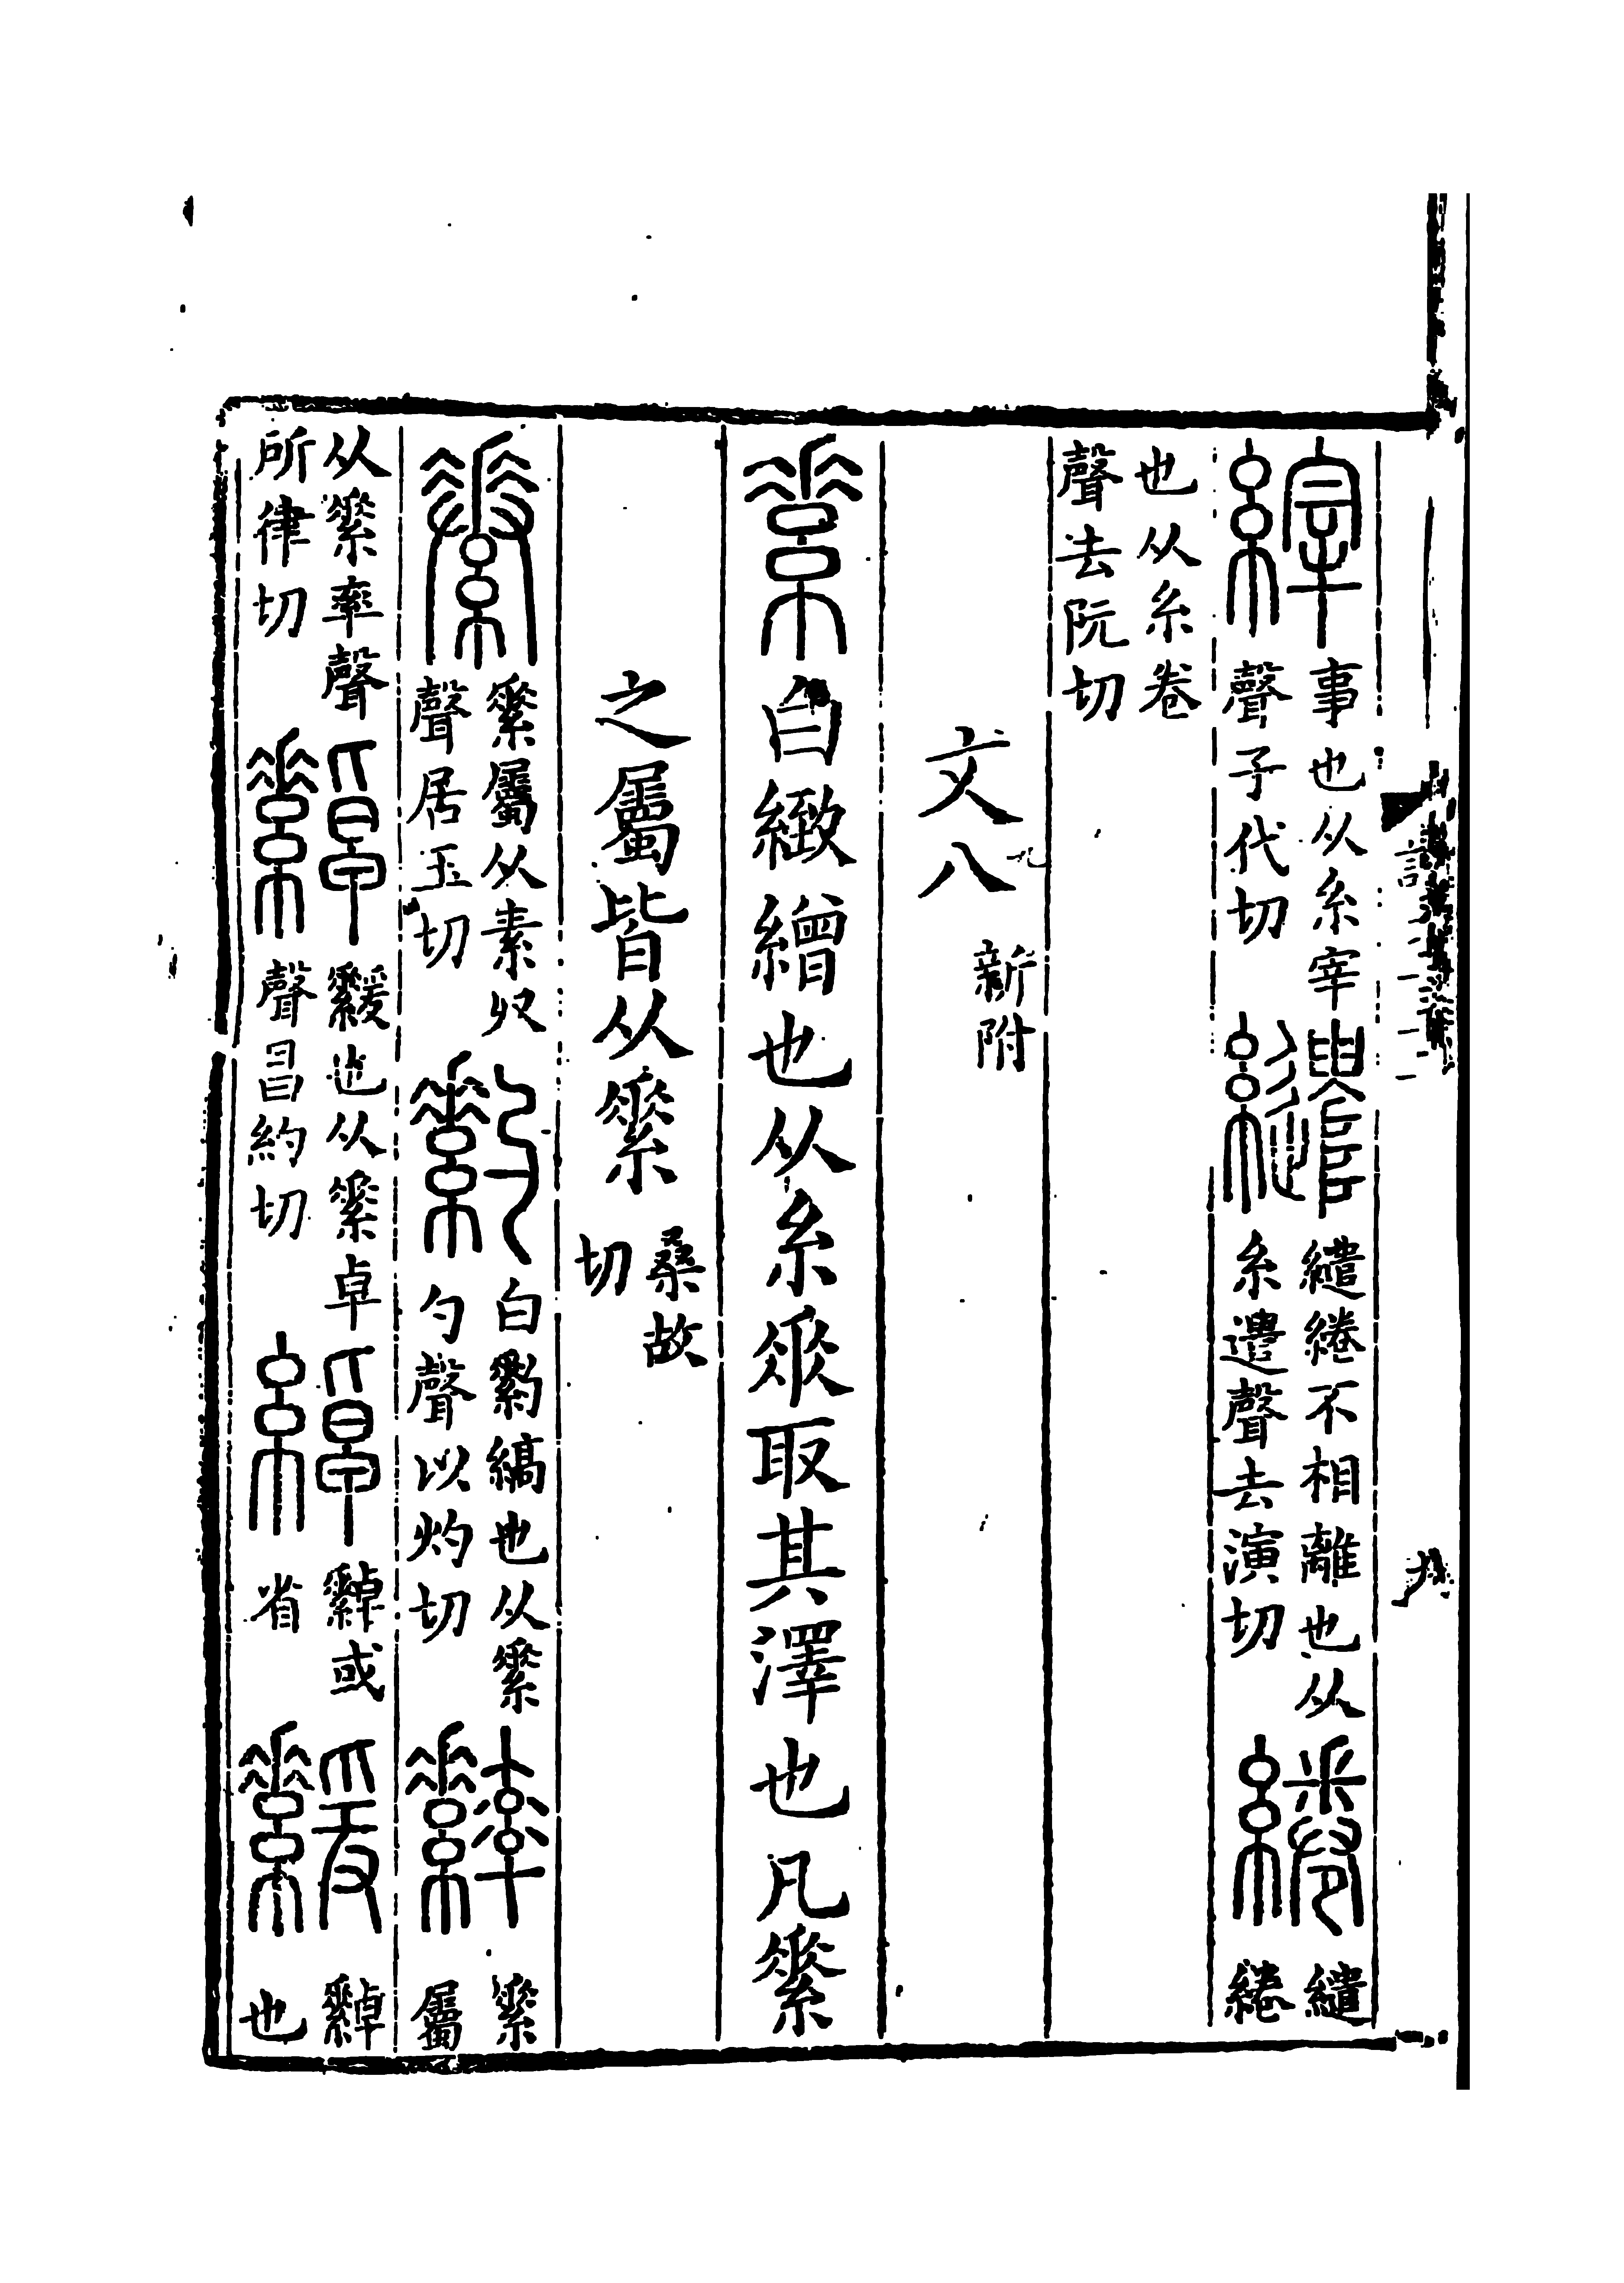 縡事也从糸宰聲子代切繾繾綣不相離也从糸遣聲去演切綣繾綣
也从糸卷聲去阮切
文八新附
素白緻繒也从糸𠂹取其澤也凡素
之屬皆从素桑故切
素屬从素収聲居玉切䋤白䋤縞也从素勺聲以灼切素屬
从素率聲所律切繛也从素卓聲昌約切綽繛或省繛也